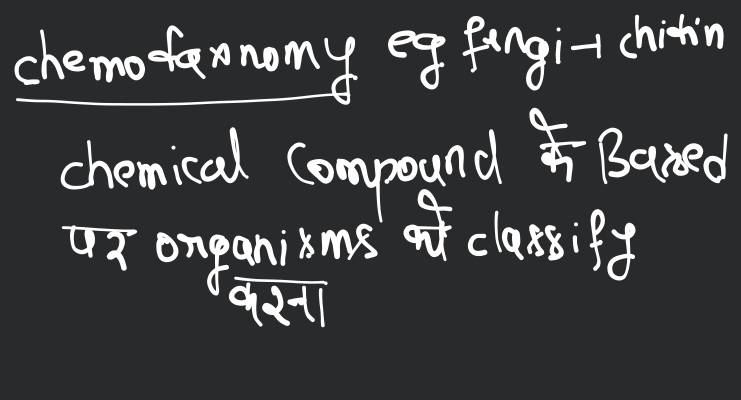 chemotaxnomy eg fungi → chitin
chemical compound के Based
पर organisms को classify
करना